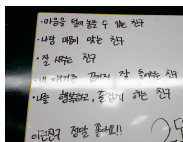 ·마음을 털어 놓을 수 있는 친구
·나랑 마음이 맞는 친구
·잘 사주는 친구
·내 얘기를 끝까지 잘 들어주는 친구
·나를 행복하고, 즐겁게 하는 친구
이런친구 정말 좋아요!!